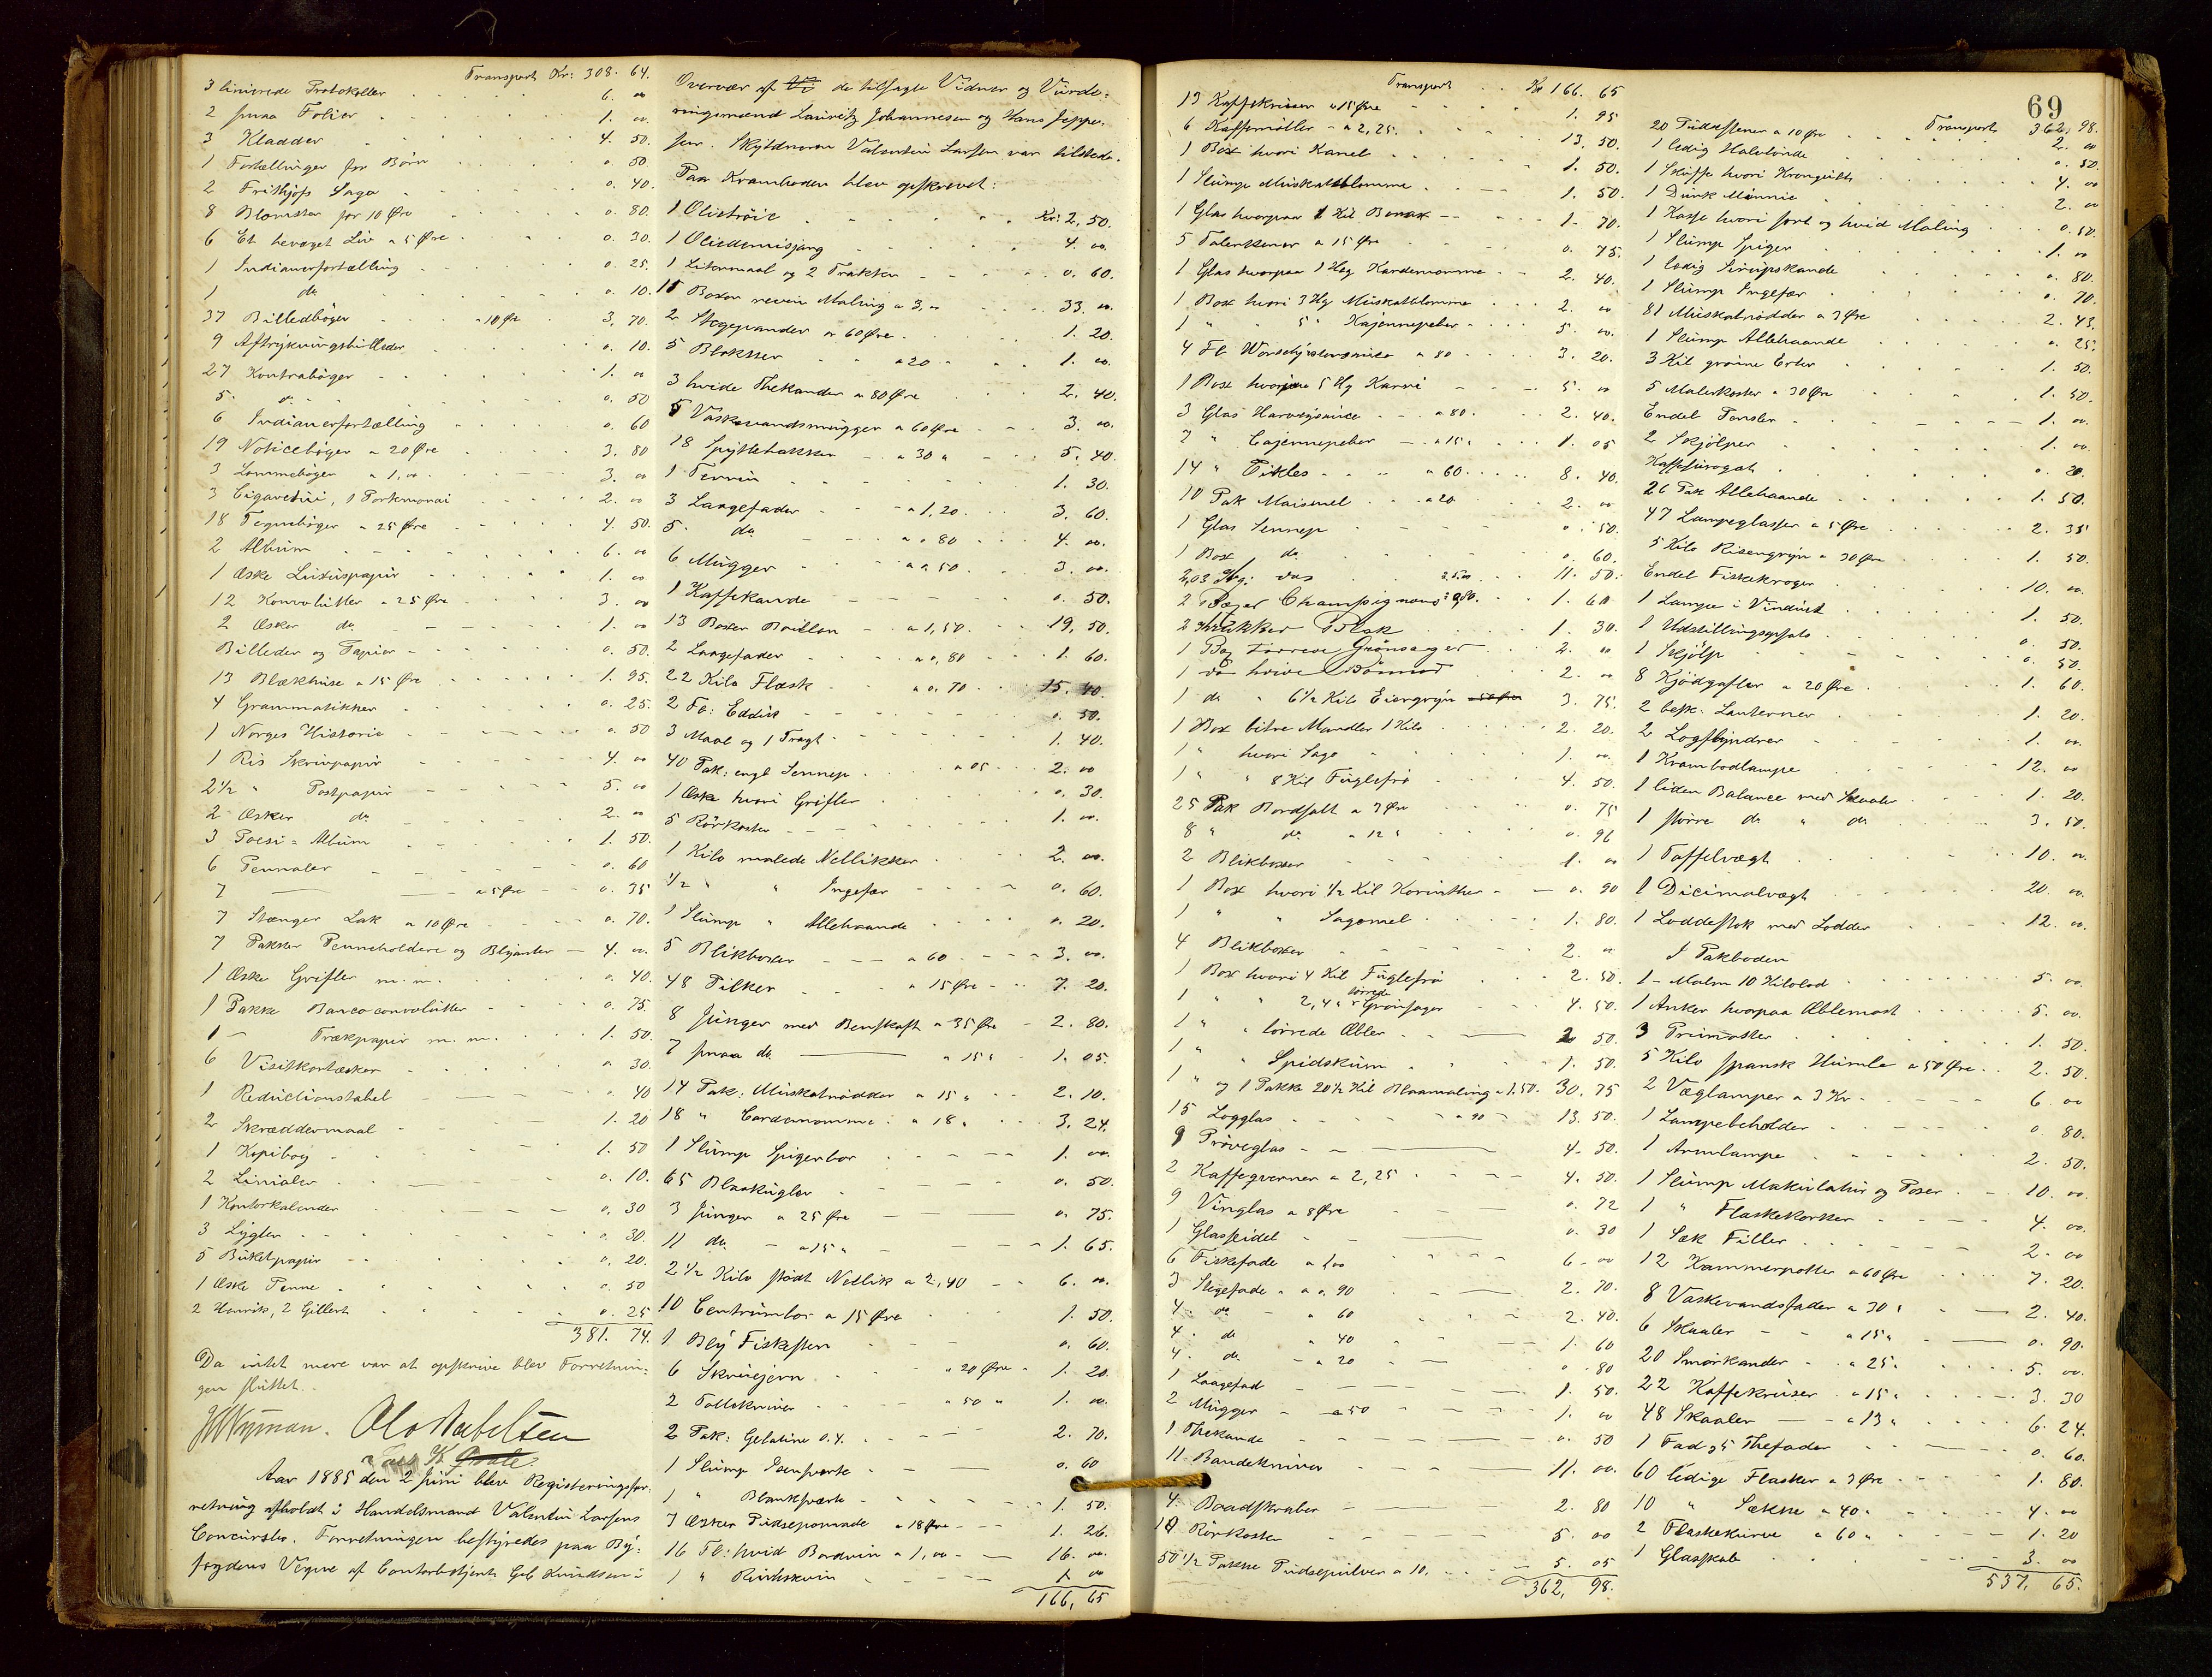 Transport Kr: 308. 64.
3 linierede Protokoller 6. 00
2 smaa Folier 1. 00.
3 Kladder 4. 50.
1 Fortællinger for Børn 0. 50.
2 Frithjofs Saga 0. 40.
8 Blomster pr 10 Øre 0. 80.
6 Et bevæget Liv a 5 Øre 0. 30.
1 Indianerfortælling 0. 25.
1 do 0. 10.
37 Billedbøger a 10 Øre 3. 70.
9 Aftrykningsbilleder 0. 10.
27 Kontrabøger 1. 00
5 do 0. 50
6 Indianerfortælling 0. 60
19 Noticebøger a 20 Øre 3. 80
3 Lommebøger a 1,00 3. 00
3 Cigaretui, 1 Portmonai 2. 00
18 Tegnebøger a 25 Øre 4. 50.
2 Album 6. 00
1 Æske Luxuspapir 1. 00
12 Konvolutter a 25 Øre 3. 00
2 Æsker do 1. 00
Billeder og Papir 0. 50.
13 Blækhuse a 15 Øre 1. 95.
4 Grammatikker 0. 25.
1 Norges Historie 0. 50
1 Ris Skrivpapir 4. 00
2 1/2 " Postpapir 5. 00
2 Æsker do 2. 00
3 Poesi = Album 1. 50.
6 Pennaler 0. 60
7 — a 5 Øre 0. 35
7 Stænger Lak a 10 Øre 0. 70.
7 Pakker Penneholdere og Blyanter 4. 00.
1 Æske Grifler m. m. 0. 40.
1 Pakke Bancoconvolutter 0. 75.
1 — Trækpapir m. m. 1. 50.
6 Visitkortæsker 0. 30.
1 Reductionstabel 0. 40
2 Skræddermaal 1. 20
1 Kopibog 1. 50
2 Linialer 0. 10.
1 Kontorkalender 0. 30
3 Lygter 0. 30.
5 Buketpapir 0. 20.
1 Æske Penne 0. 50
2 Henrik, 2 Gillert 0. 25
381. 74.
Da intet mere var at opskrive blev Forretnin=
gen sluttet.
Aar 1885 den 2 Juni blev Registreringsfor=
retning afholdt i Handelsmand Valentin Larsens
Concursbo. Forretningen bestyredes paa By=
fogdens Vegne af Contorbetjent Geb Knudsen i
Overvær af de tilsagte Vidner og Vurde=
ringsmænd Lauritz Johannesen og Hans Jeppe=
sen. Skyldneren Valentin Larsen var tilstede.
Paa Kramboden blev opskrevet:
1 Olietrøie Kr: 2, 50.
1 Oliedunisjang 4. 00.
1 Litermaal og 2 Trakter 0. 60.
11 Boxer reven Maling a 3,00 33. 00.
2 Stegepander a 60 Øre 1. 20.
5 Blokker a 20 1. 00.
3 hvide Thekander a 80 Øre 2. 40.
5 Vaskevandsmugger a 60 Øre 3. 00.
18 Spyttebakker a 30 " 5. 40.
1 Terrin 1. 30.
3 Laagefader a 1,20 3. 60.
5 do a 0 80 4. 00.
6 Mugger a 0. 50 3. 00.
1 Kaffekande 0. 50.
13 Boxer Bouillon a 1,50 19, 50.
2 Laagefader a 0, 80 1. 60.
22 Kilo Flæsk a 0. 70 15. 40.
2 Fl: Eddik 0. 50.
3 Maal og 1 Tragt 1. 40.
40 Pak: engl Sennep a 05 2. 00
1 Æske hvori Grifler 0. 30.
5 Rørkoster 1. 00.
1 Kilo malede Nellikker 2. 00.
1/2 " " Ingefær 0. 60.
1 Slump " Allehaande 0. 20.
5 Blikboxer a 60 3. 00.
48 Pilker a 15 Øre 7. 20.
8 Junger med Benskaft a 35 Øre 2. 80.
7 smaa do a 15 " 1. 05.
14 Pak: Muskatnødder a 15 " 2. 10.
18 " Cardemomme a 18 " 3. 24.
1 Slump Spigerbor 1. 00.
65 Blaakugler 0. 50.
3 Junger a 25 Øre 0. 75.
11 do a 15 " 1. 65.
2 1/2 Kilo stødt Nellik a 2,40 6. 00.
10 Centrumbor a 15 Øre 1. 50.
1 Bly Fiskesten 0. 60.
6 Skruejern a 20 Øre 1. 20.
2 Follekniver a 50 " 1. 00.
2 Pak: Gelatine 0.4. 2. 70.
1 Slump Isensværte 0. 60
1 " Blanksværte 1. 50.
7 Æsker Pudsepomade a 18 Øre 1. 26.
16 Fl: hvid Bordvin a 1,00 16. 00.
1 " Rinskvin 1 00
166, 65
69
Transport Kr 166. 65
13 Kaffekruser a 15 Øre 1. 95
6 Kaffemøller a 2,25. 13. 50.
1 Box hvori Kanel 1. 50.
1 Slump Muskatblomme 1. 50.
1 Glas hvorpaa 1 Kil Borax 1. 70.
5 Talerkener a 15 Øre 0. 75.
1 Glas hvorpaa 1 Hg Kardemomme 2. 40.
1 Box hvori 3 Hg Muskatblomme 2. 00
1 " " 5 " Kajennepeber 5. 00.
4 Fl. a 80 3. 20.
1 Box hvorpaa 5 Hg Karri 5. 00
3 Glas a 80. 2. 40.
7 " Cajennepeber a 15 " 1. 05
14 " Pikles a 60. 8. 40.
10 Pak Maismel a 20 2. 00
1 Glas Sennep 0. 50.
1 Box do. 0. 60.
11. 50.
2 Bæger Champignons 1. 60
2 1. 30.
1 Box tørrede Grønsager 2. 00
1 do hvide Bønner 2. 00
1 do " 6 1/2 Kilo Eiergryn 3. 75.
1 Box bitre Mandler 1 Kilo 2. 20.
1 " hvori Sago 1. 00.
1 " " 8 Kil Fuglefrø 4. 50.
25 Pak Bordsalt a 3 Øre 0. 75
8 " do a 12 " 0. 96
2 Blikboxer 1. 00
1 Box hvori 1/2 Kil Korinther 0. 90
1 " " Sagomel 1. 80.
4 Blikboxer 2. 00
1 Box hvori 4 Kil Fuglefrø 2. 50.
1 " " 2,4 " tørrede Grønsager 4. 50.
1 " " tørrede Æbler 2 50.
1 " " Spidskum 1. 50.
1 " og 1 Pakke 20 1/2 Kil Blaamaling a 1.50. 30. 75
15 Logglas a 90 13. 50.
9 Prøveglas 4. 50.
2 Kaffeqverner a 2,25 4. 50.
9 Vinglas a 8 Øre 0. 72
1 Glasseidel 0. 30
6 Fiskefade a 1,00 6. 00
3 Stegefade a 0. 90 2. 70.
4 do a 60 2. 40.
4 do " 40 1. 60
4 do a 20 0. 80
1 Laagefad 1. 50.
2 Mugger a 50 1. 00
1 Thekande 0. 50
11 Bandekniver 11. 00.
4 Baadskraber 2. 80
10 Rørkoster 5. 00
50 1/2 Pakke Pudsepulver a 10. 5. 05
362, 98.
Transport 362, 98.
20 Pudsestene a 10 Øre 2. 00
1 ledig Halvtønde 0. 50.
1 Skuffe hvori Krongult 4. 00
1 Dunk Mønnie 2. 00
1 Kasse hvori sort og hvid Maling 0. 50.
1 Slump Spiger 1. 00
1 ledig Sirupskande 0. 80.
1 Slump Ingefær 0. 70.
81 Muskatnødder a 3 Øre 2. 43.
1 Slump Allehaande 0. 25.
3 Kil grønne Erter 1. 50.
5 Malerkoster a 30 Øre 1. 50.
Endel Pensler 1. 00.
2 Skjølper 1. 00.
Kaffesurogat 0. 20.
26 Pak Allehaande 1. 50.
47 Lampeglasser a 5 Øre 2. 35
5 Kilo Risengryn a 30 Øre 1. 50.
Endel Fiskekroger 10. 00.
1 Lampe i Vinduet 1. 50.
1 Udstillingsopsats 0. 50.
1 Skjølp 0. 50.
8 Kjødgafler a 20 Øre 1. 60.
2 besk. Lanterner 1. 20.
2 Logflyndrer 1. 00.
1 Krambodlampe 12. 00
1 liden Balance med Skaaler 1. 20.
1 større do " do 3. 50.
1 Taffelvægt 10. 00.
1 Dicimalvægt 20. 00.
1 Loddestok med Lodder 12. 00.
I Pakboden
1 - Malm 10 Kilolod 5. 00.
1 Anker hvorpaa Æblemost 5. 00.
3 1. 50.
5 Kilo spansk Humle a 50 Øre 2. 50.
2 Væglamper a 3 Kr 6. 00
1 Lampebeholder 0. 80.
1 Armlampe 2. 50.
1 Slump Makulatur og Poser 10. 00.
1 " Flaskekorker 4. 00.
1 Sæk Filler 2. 00
12 Kammerpotter a 60 Øre 7. 20.
8 Vaskevandsfader a 30 " 2. 40.
6 Skaaler a 15 " 0. 90.
20 Smørkander a 25 " 5. 00.
22 Kaffekruser a 15 " 3. 30
48 Skaaler a 13 " 6. 24.
1 Fad og 5 Thefader 0. 60.
60 ledige Flasker a 3 Øre 1. 80.
10 " Sække a 40 " 4. 00
2 Flaskekurve a 60 " 1. 20
1 Glasskab 3. 00
537, 65.